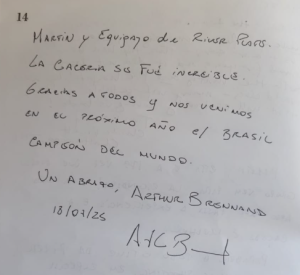 14
Martín y Equipazo de River Plate.
La cacería sis fué increíble.
Gracias a todos y nos vemos
en el próximo año c/ Brasil
campeón del mundo.
Un abrazo, Arthur Brennand
18/07/25